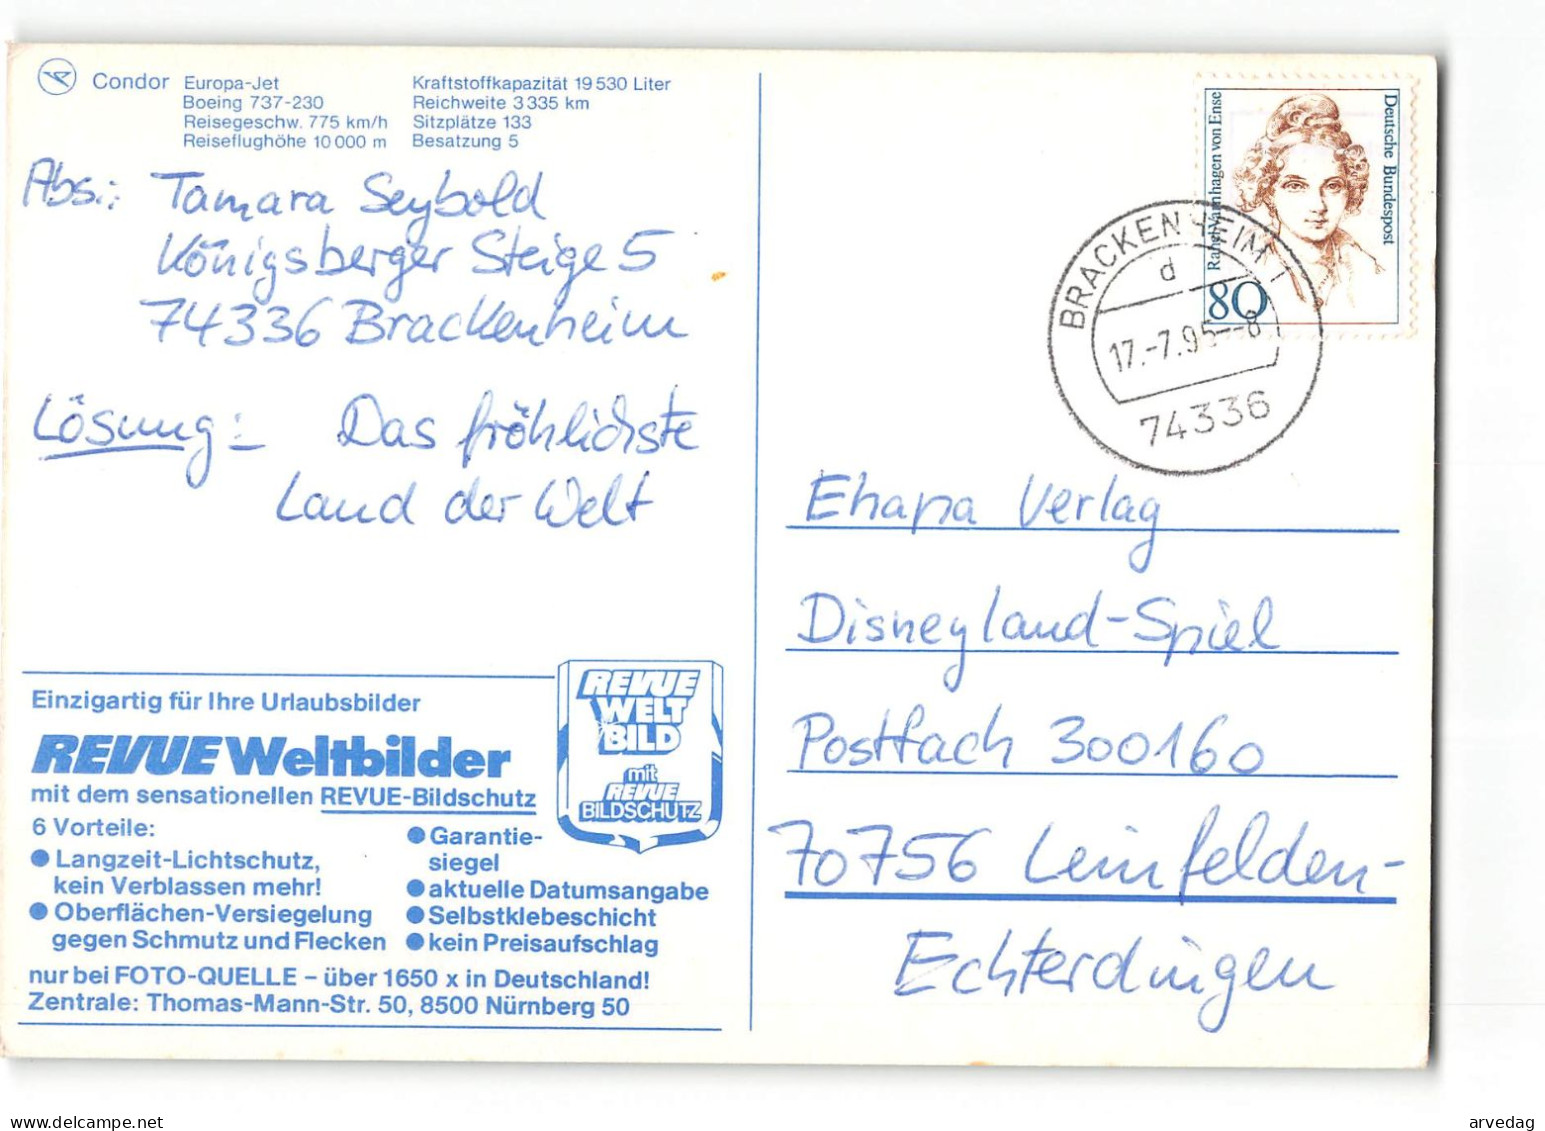 Condor
Europa-Jet
Boeing 737-230
Reisegeschw. 775 km/h
Reiseflughöhe 10 000 m
Kraftstoffkapazität 19 530 Liter
Reichweite 3 335 km
Sitzplätze 133
Besatzung 5
Abs.: Tamara Seybold
Königsberger Steige 5
74336 Brackenheim
Lösung: Das fröhlichste
Land der Welt
Einzigartig für Ihre Urlaubsbilder
REVUE Weltbilder
mit dem sensationellen REVUE-Bildschutz
6 Vorteile:
● Langzeit-Lichtschutz,
kein Verblassen mehr!
● Oberflächen-Versiegelung
gegen Schmutz und Flecken
● Garantie-
siegel
● aktuelle Datumsangabe
● Selbstklebeschicht
● kein Preisaufschlag
nur bei FOTO-QUELLE – über 1650 x in Deutschland!
Zentrale: Thomas-Mann-Str. 50, 8500 Nürnberg 50
REVUE
WELT
BILD
mit
REVUE
BILDSCHUTZ
Rahel Varnhagen von Ense
Deutsche Bundespost
80
BRACKENHEIM 1
d
17.-7.95--8
74336
Ehapa Verlag
Disneyland-Spiel
Postfach 300160
70756 Leinfelden-
Echterdingen
arvedag
delcampe.net